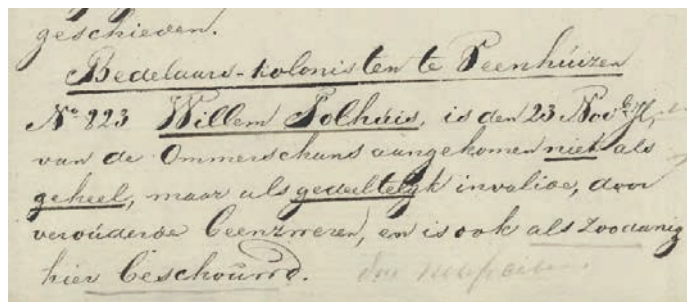 geschieden.
Bedelaars-kolonisten te Veenhúizen
No 823 Willem Tolhúis, is den 23 Novb. jl,
van de Ommerschans aangekomen niet als
geheel, maar als gedeeltelijk invalide, door
veroúderde beenzweren, en is ook als zoodanig
hier beschouwd.